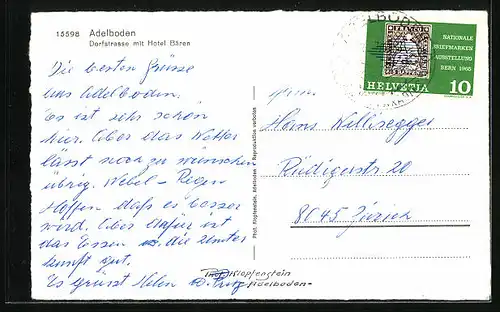 15598 Adelboden
Dorfstrasse mit Hotel Bären
Die besten Grüsse
aus Adelboden.
Es ist sehr schön
hier. Aber das Wetter
lässt noch zu wünschen
übrig. Nebel - Regen
Hoffen daß es besser
wird. Aber dafür ist
das Essen u. die Unter
kunft gut.
Es grüsst Helen u. Fritz
Phot. Klopfenstein, Adelboden • Reproduktion verboten
NATIONALE
BRIEFMARKEN
AUSSTELLUNG
BERN 1965
HELVETIA 10
Hans
Rüdigerstr 20
8045 Zürich
Klopfenstein
Adelboden